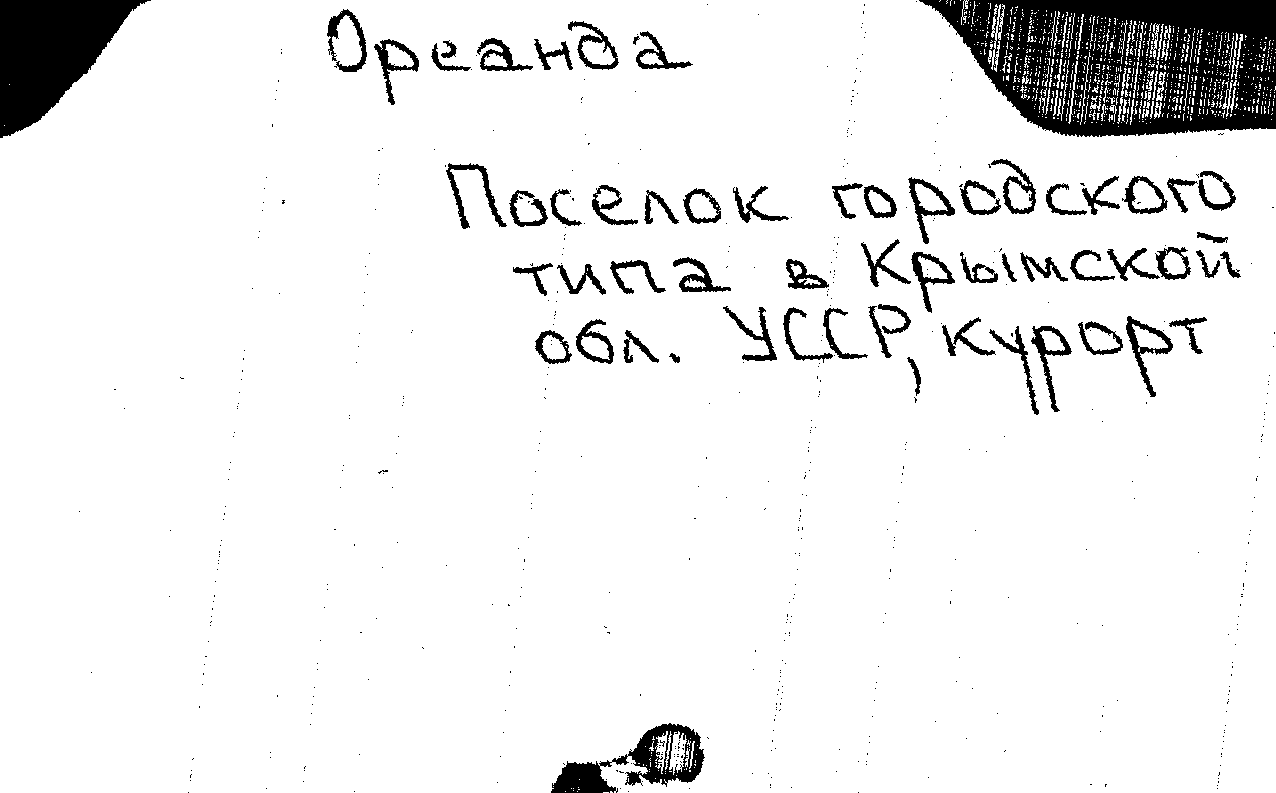 Ореанда
Поселок городского
типа в Крымской
обл. УССР, курорт